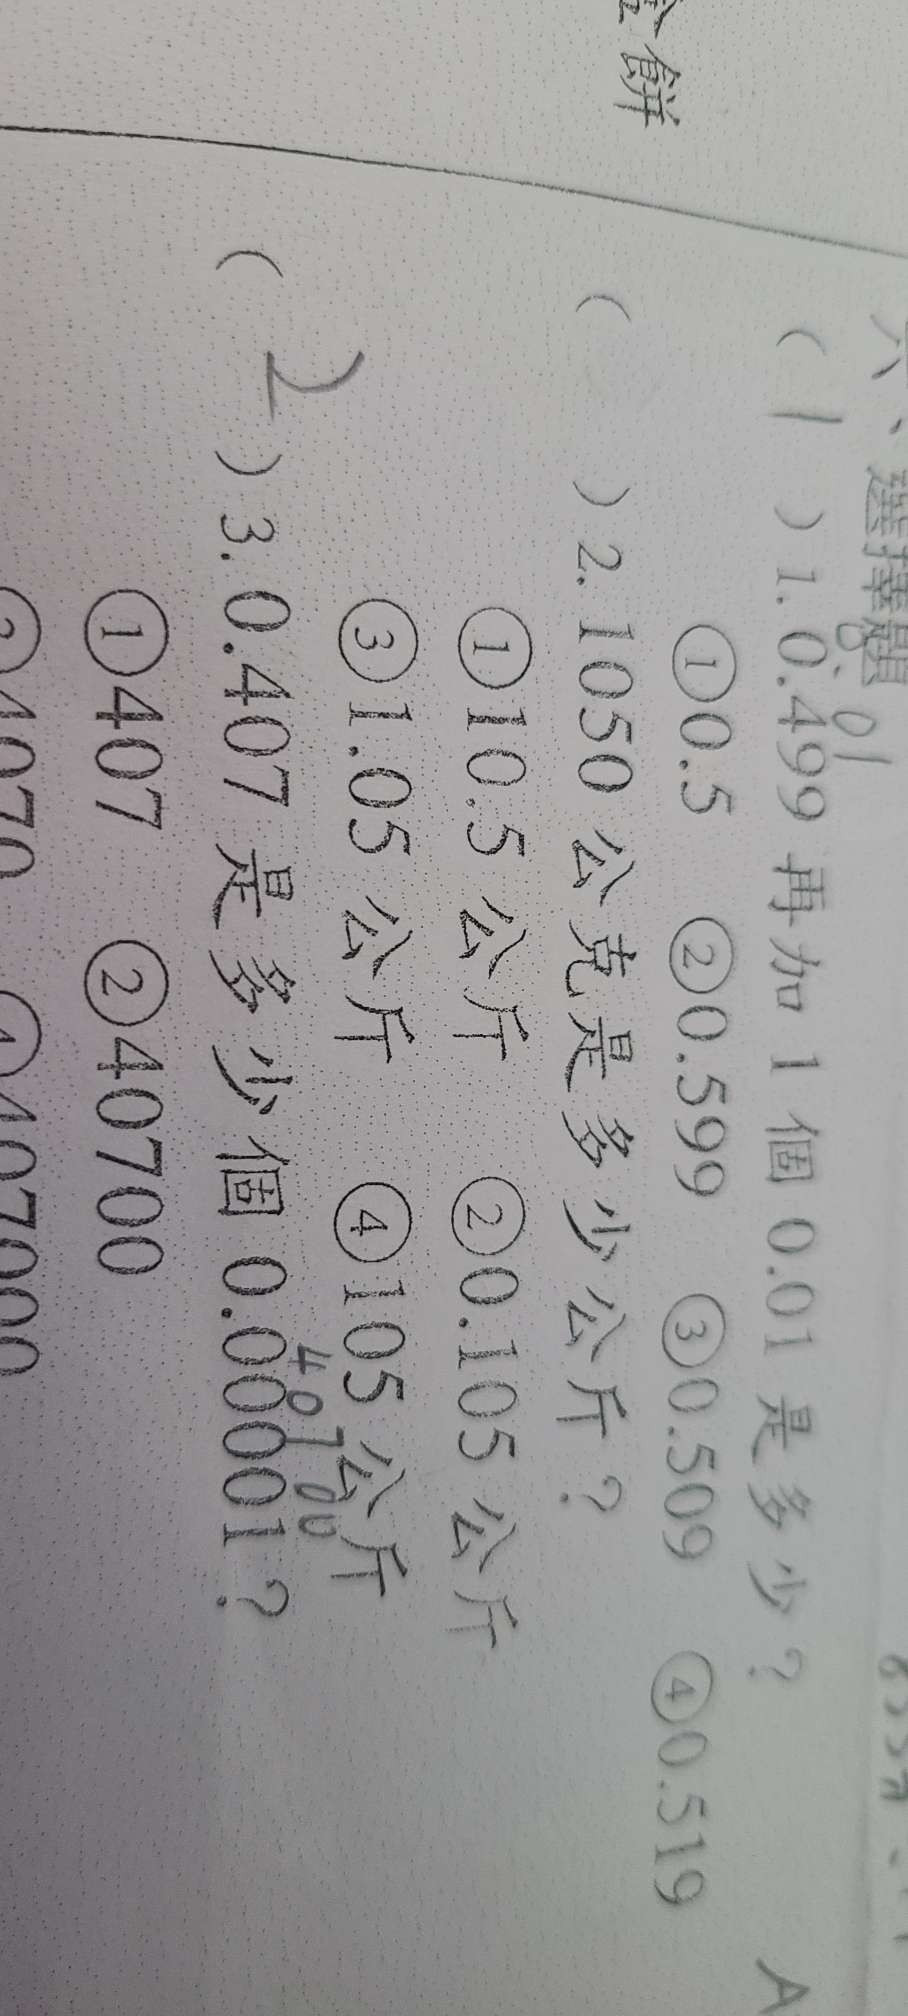 盒餅
六、選擇題
0.01
(1)1. 0.499 再加 1 個 0.01 是多少?
①0.5 ②0.599 ③0.509 ④0.519
( )2. 1050 公克是多少公斤?
①10.5 公斤 ②0.105 公斤
③1.05 公斤 ④105 公斤
40700
(2)3. 0.407 是多少個 0.00001?
①407 ②40700
③4070 ④407000
A